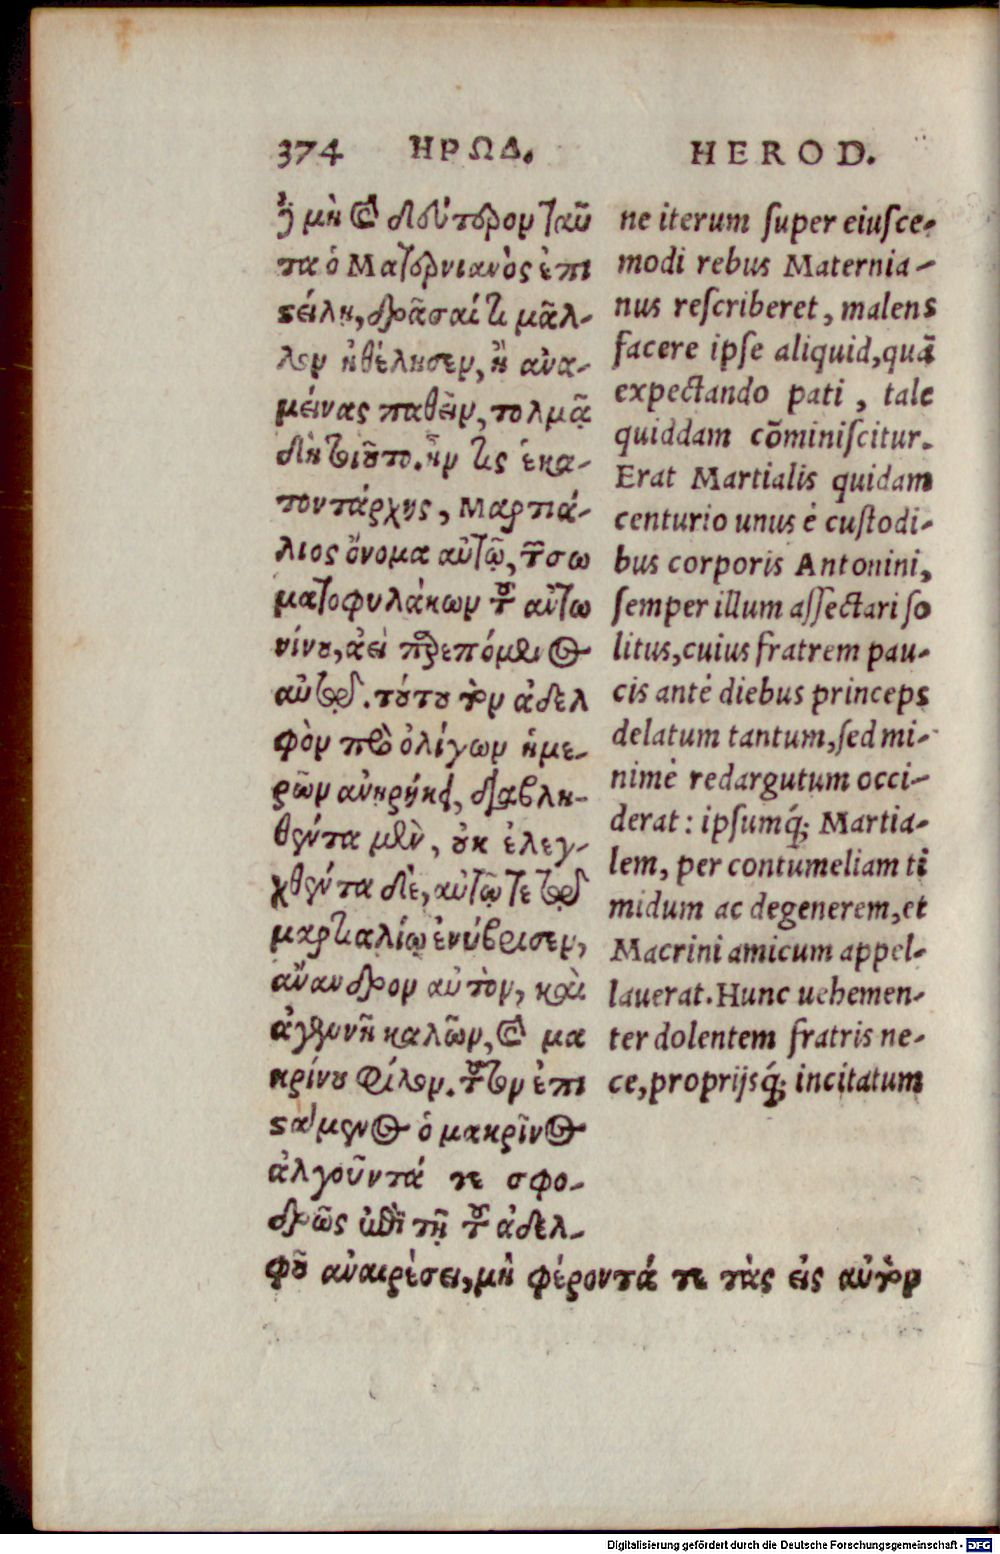 374 ΗΡΩΔ.
ᾖ μὴ καὶ δεύτερον ταῦ
τα ὁ Ματερνιανὸς ἐπι
ςείλῃ, δρᾶσαί τι μᾶλ-
λον ἠθέλησεν, ἢ ἀνα-
μείνας παθεῖν, τολμᾷ
δὴ τοιοῦτο. ἦν τις ἑκα-
τοντάρχης, Μαρτιά-
λιος ὄνομα αὐτῷ, τῶν σω
ματοφυλάκων τοῦ αὐτω
νίνου, ἀεὶ παρεπόμενος
αὐτῷ. τούτου τὸν ἀδελ
φὸν πρὸ ὀλίγων ἡμε-
ρῶν ἀνῃρήκει, διαβλη-
θέντα μὲν, οὐκ ἐλεγ-
χθέντα δὲ, αὐτῷ τε τῷ
μαρτιαλίῳ ἐνύβρισεν,
ἄνανδρον αὐτὸν, καὶ
ἀγεννῆ καλῶν, καὶ μα
κρίνου φίλον. τοῦτον ἐπι
ςάμενος ὁ μακρῖνος
ἀλγοῦντά τε σφο-
δρῶς ἐπὶ τῇ τοῦ ἀδελ-
φοῦ ἀναιρέσει, μὴ φέροντά τε τὰς εἰς αὐτὸν
HEROD.
ne iterum ſuper eiuſce-
modi rebus Maternia-
nus reſcriberet, malens
facere ipſe aliquid, quã
expectando pati, tale
quiddam cõminiſcitur.
Erat Martialis quidam
centurio unus é cuſtodi-
bus corporis Antonini,
ſemper illum aſſectari ſo
litus, cuius fratrem pau-
cis anté diebus princeps
delatum tantum, ſed mi-
nimé redargutum occi-
derat: ipſumq́; Martia-
lem, per contumeliam ti
midum ac degenerem, et
Macrini amicum appel-
lauerat. Hunc uehemen-
ter dolentem fratris ne-
ce, proprijsq́; incitatum
Digitalisierung gefördert durch die Deutsche Forschungsgemeinschaft - DFG